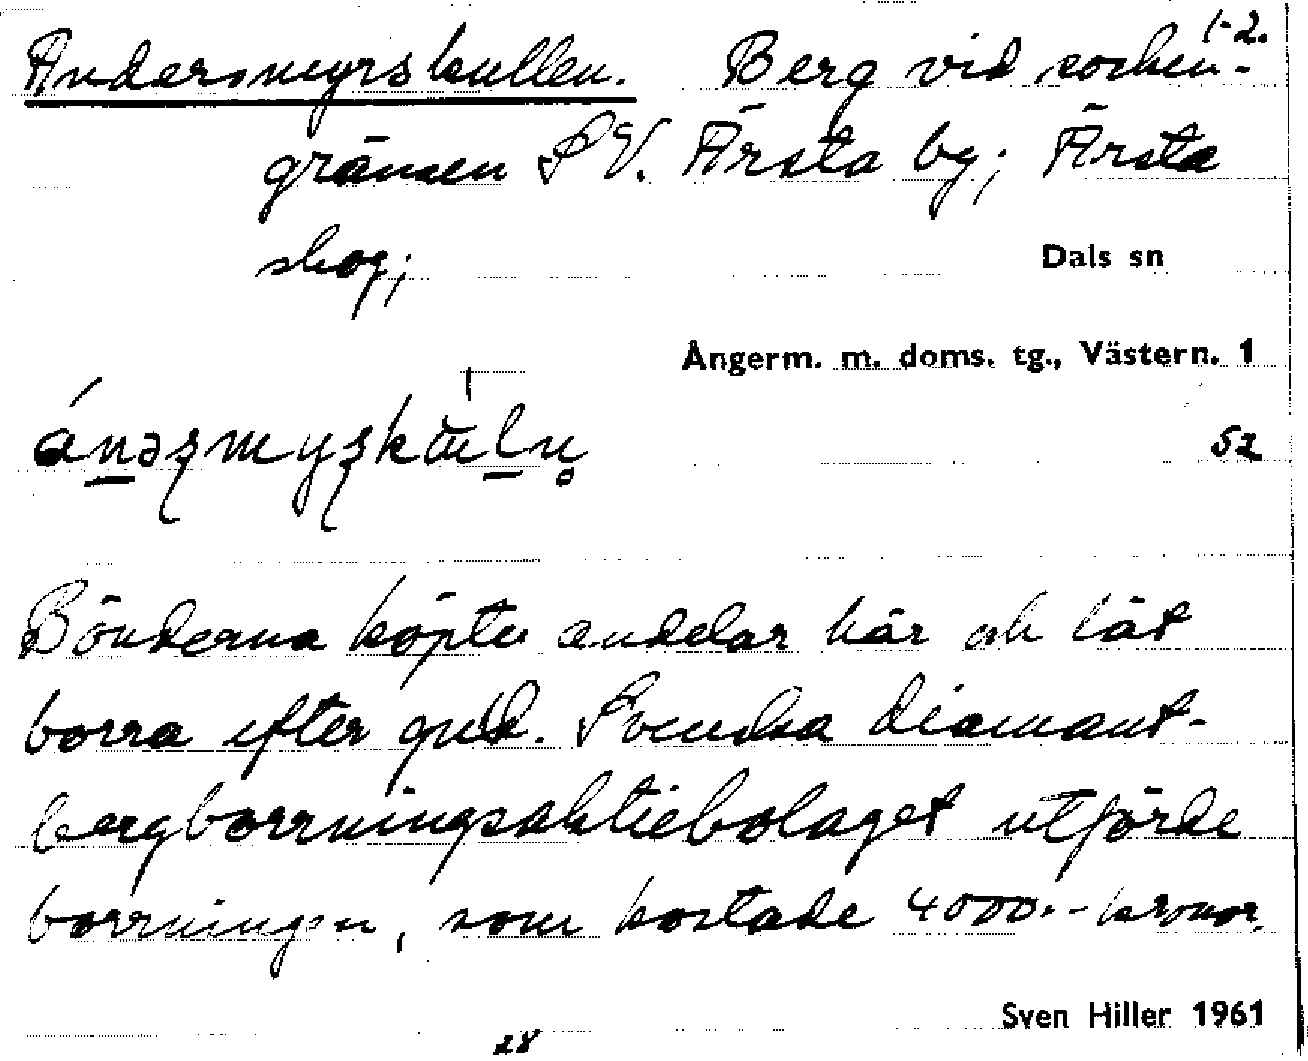 1-2.
Andersmyrskullen. Berg vid socken-
gränsen SV. Ärsta by; Ärsta
skog;
Dals sn
Ångerm. m. doms. tg., Västern. 1
52
Bönderna köpte andelar här och lät
borra efter guld. Svenska diamant-
bergborrningsaktiebolaget utförde
borrningen, som kostade 4000.- kronor.
Sven Hiller 1961
28